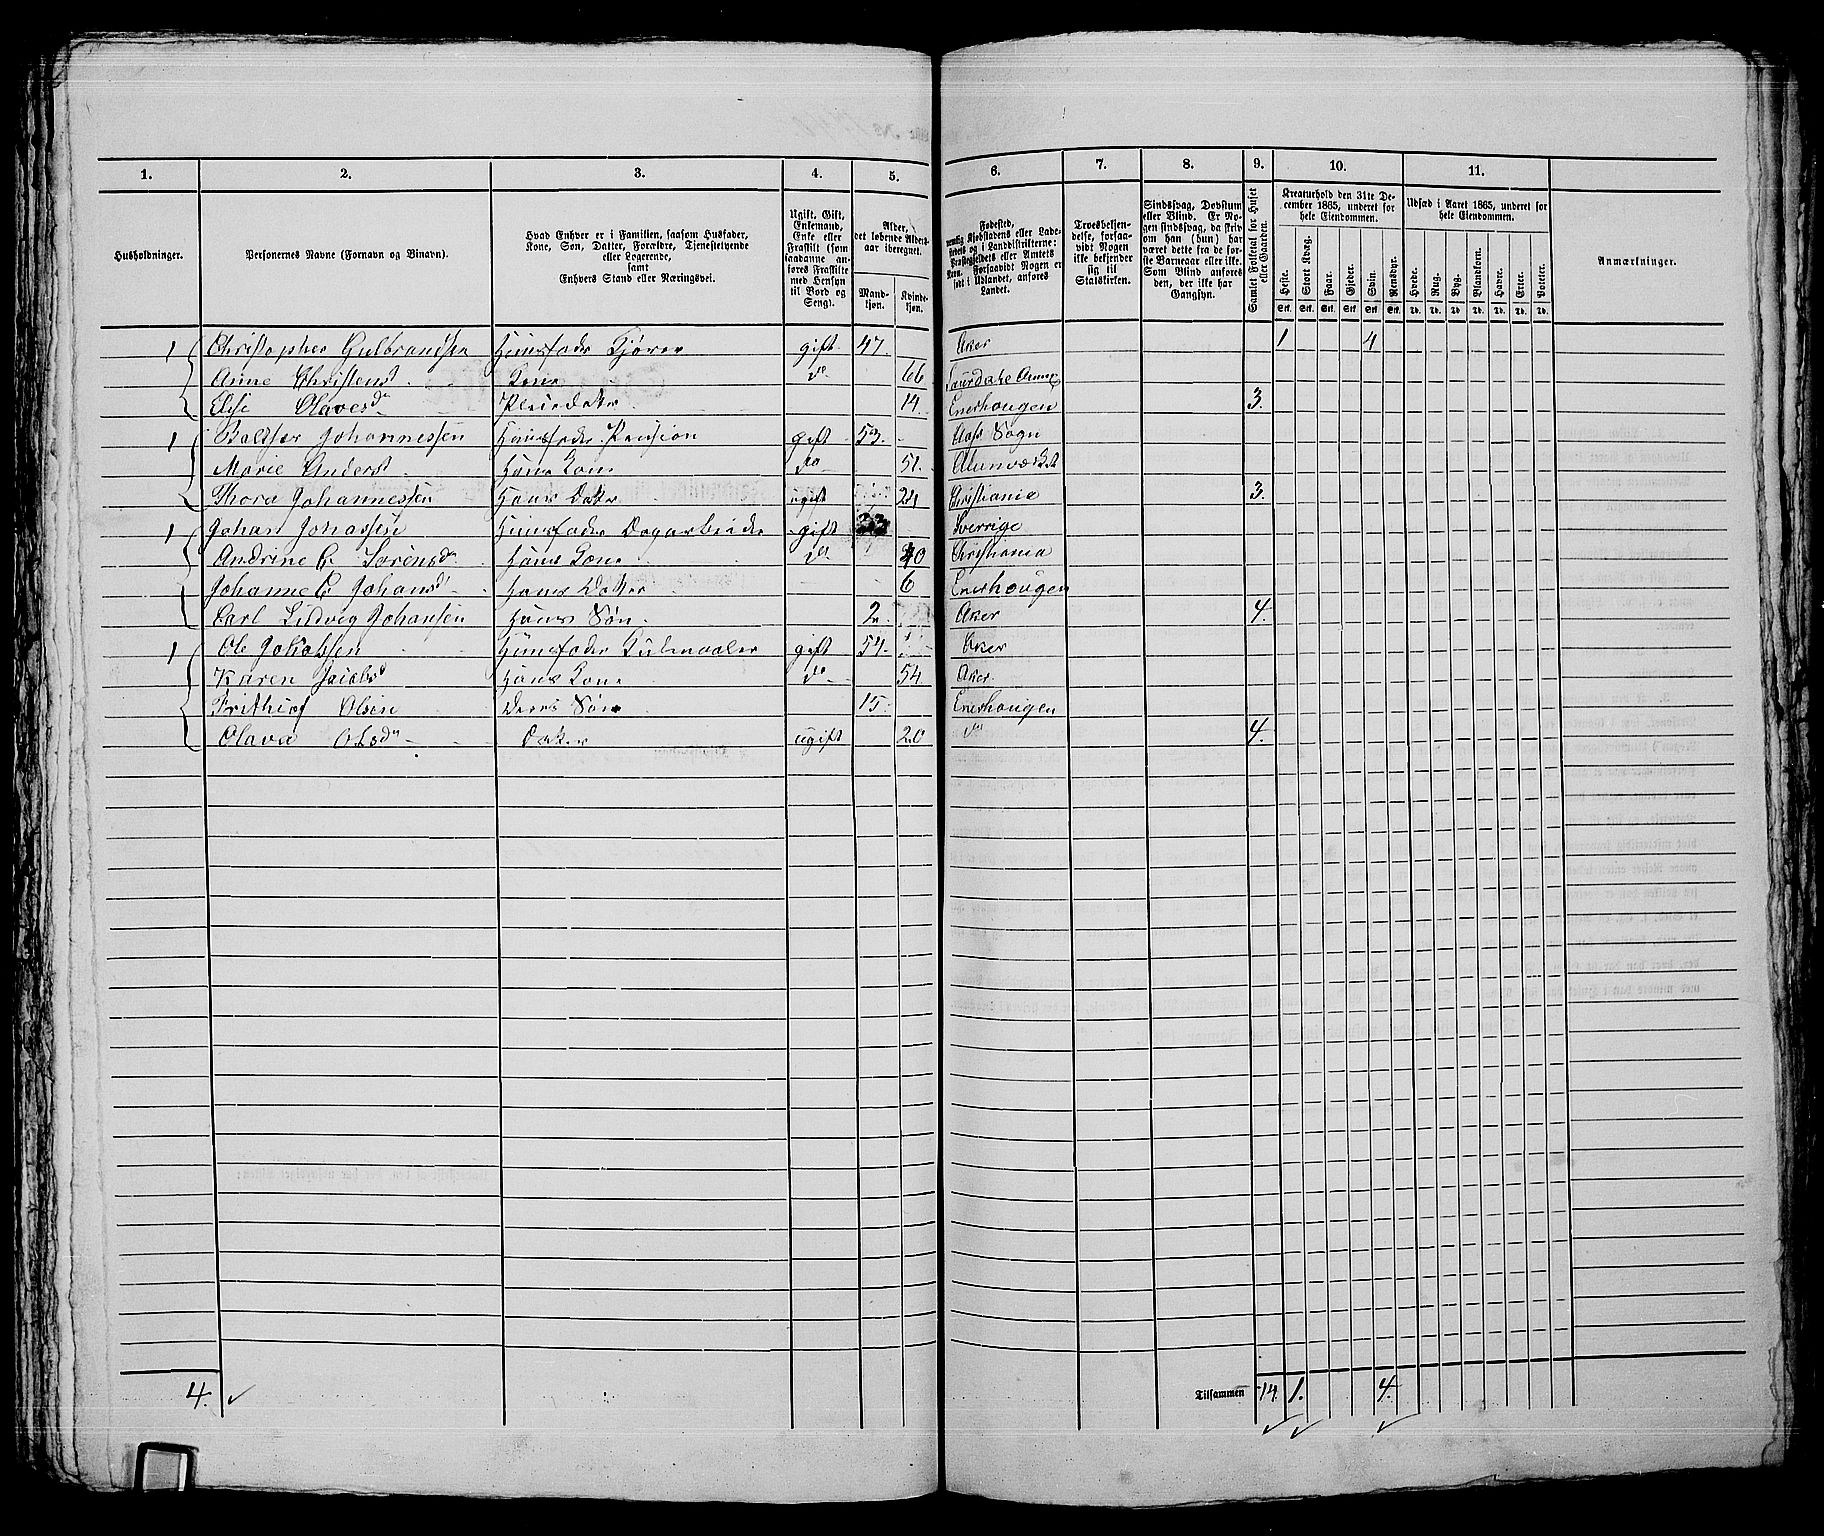 1. 2. 3. 4. 5. 6. 7. 8. 9. 10. 11.
Husholdninger.
Personernes Navne (Fornavn og Binavn).
Hvad Enhver er i Familien, saasom Husfader,
Kone, Søn, Datter, Forældre, Tjenestetyende
eller Logerende,
samt
Enhvers Stand eller Næringsvei.
Ugift, Gift,
Enkemand,
Enke eller
Fraskilt (som
saadanne an-
føres Fraskilte
med Hensyn
til Bord og
Seng).
Alder,
det løbende Alders-
aar iberegnet.
Mand-
kjøn.
Kvinde-
kjøn.
Fødested,
nemlig Kjøbstadens eller Lade-
stedets og i Landdistrikterne:
Præstegjeldets eller Amtets
Navn. Forsaavidt Nogen er
født i Udlandet, anføres
Landet.
Troesbekjen-
delse, forsaa-
vidt Nogen
ikke bekjender
sig til
Statskirken.
Sindssvag, Døvstum
eller Blind. Er No-
gen sindssvag, da skriv
om han (hun) har
været dette fra de før-
ste Barneaar eller ikke.
Som Blind anføres
den, der ikke har
Gangsyn.
Samlet Folketal for Huset
eller Gaarden.
Kreaturhold den 31te De-
cember 1865, underet for
hele Eiendommen.
Heste. Stort Kvæg. Faar. Gjeder. Svin. Rensdyr.
Stk. Stk. Stk. Stk. Stk. Stk.
Udsæd i Aaret 1865, underet for
hele Eiendommen.
Hvede. Rug. Byg. Blandkorn. Havre. Erter. Poteter.
Td. Td. Td. Td. Td. Td. Td.
Anmærkninger.
1 Christopher Gulbrandsen Huusfader Kjører gift 47. Aker 1 4
Anne Christensd Kone do 66
Elise Olavesdr Pleiedatter 14. Enerhougen 3.
1 Baltser Johannessen Huusfader Pension gift 53. Aas Sogn
Marie Andersd Hans Kone do 51. Alunværket
Thora Johannessen Hans Datter ugift 24 Christiania 3.
1 Johan Johassen Huusfader Dagarbeider gift 33 Sverrige
Andrine G Sørensdr Hans Kone do 40 Christiania
Johanne C Johansd Hans Datter 6 Enerhougen
Carl Ludvig Johansen Hans Søn. 2. Aker 4.
1 Ole Johassen Huusfader gift 54. Aker
Karen Jacobsd Hans Kone do 54 Aker.
Frithiof Olsen Deres Søn 15. Enerhougen
Olava Olsdr Datter ugift 20 do 4.
4. Tilsammen 14. 1. 4.